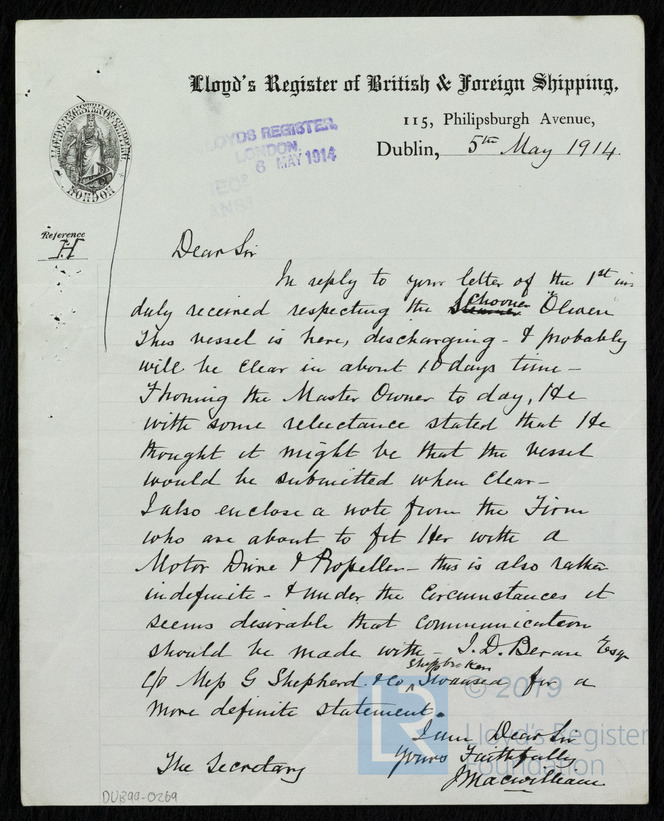 Lloyd's Register of British & Foreign Shipping,
115, Philipsburgh Avenue,
Dublin, 5th May 1914.
LLOYD'S REGISTER OF SHIPPING
LONDON
LOYDS REGISTER,
LONDON.
6 MAY 1914
Reference
H
Dear Sir
In reply to your letter of the 1st ins
duly received respecting the Schooner Olwen
This vessel is here, discharging - & probably
will be clear in about 10 days time -
Phoning the Master Owner to day, He
with some reluctance stated that He
thought it might be that the vessel
would be submitted when clear -
I also enclose a note from the Firm
who are about to fit Her with a
Motor Drive & Propeller - this is also rather
indefinite - & under the Circumstances it
seems desirable that Communication
should be made with - J. D. Bevan Esq
c/o Mess G Shepherd & Co Shipbrokers Swansea for a
more definite statement.
I am Dear Sir
Yours Faithfully
J Macwilliam
The Secretary
DUB99-0269
LR
© 2019
Lloyd's Register
Foundation